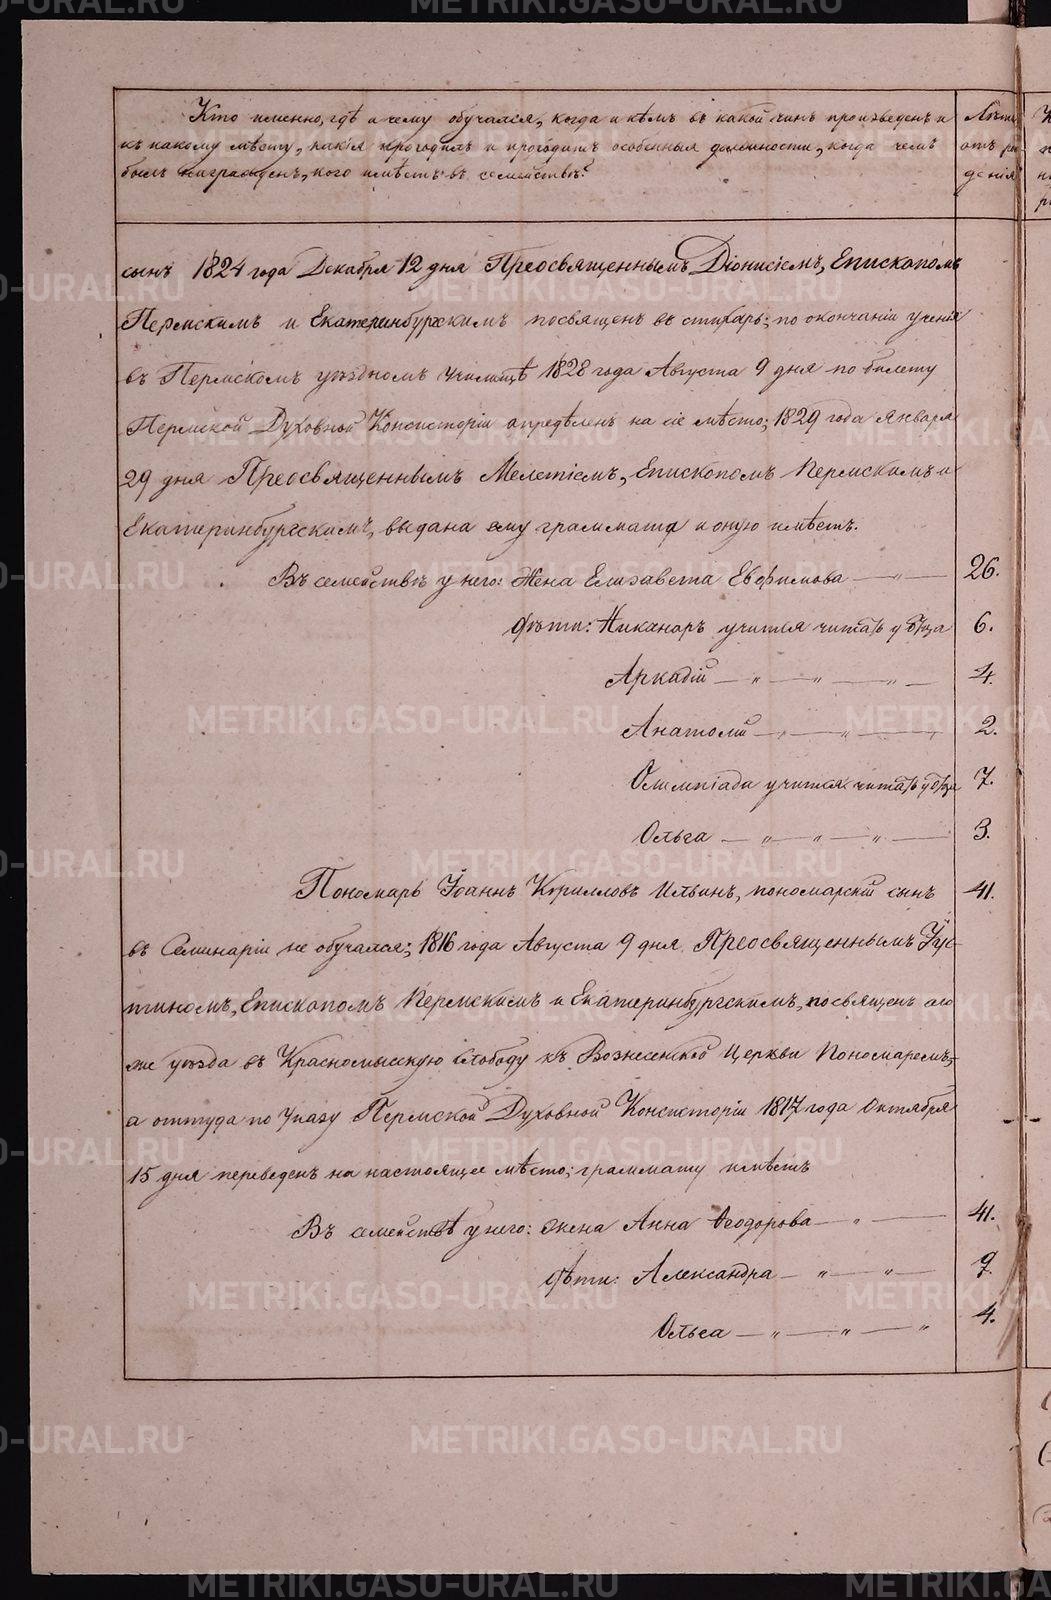 Кто именно, где и чему обучался, когда и кѣмъ въ какой чинъ произведенъ и
къ какому мѣсту, какія проходилъ и проходитъ особенныя должности, когда чемъ
былъ награжденъ, кого имѣетъ въ семействѣ?
Лѣта
отъ ро
денія
сынъ 1824 года Декабря 12 дня Преосвященнымъ Діонисіемъ, Епископомъ
Пермскимъ и Екатеринбургскимъ посвященъ въ стихарь; по окончаніи ученія
въ Пермскомъ уѣздномъ училищѣ 1828 года Августа 9 дня по билету
Пермской Духовной Консисторіи опредѣленъ на сіе мѣсто; 1829 года Января
29 дня Преосвященнымъ Мелетіемъ, Епископомъ Пермскимъ и
Екатеринбургскимъ, выдана ему граммата и оную имѣетъ.
Въ семействѣ у него: Жена Елизавета Евфимова — " — 26.
Дѣти: Никаноръ учится читать у Отца 6.
Аркадій — " — " — " — 4.
Анатолій — " — " — " 2.
Олимпіада учится читать у Отца 7.
Ольга — " — " — " — 3.
Пономарь Іоаннъ Кирилловъ Ильинъ, пономарскій сынъ 41.
въ Семинаріи не обучался; 1816 года Августа 9 дня Преосвященнымъ Іус-
тиномъ, Епископомъ Пермскимъ и Екатеринбургскимъ, посвященъ сего
же уѣзда въ Красномысскую Слободу къ Вознесенской Церкви Пономаремъ,
а оттуда по Указу Пермской Духовной Консисторіи 1817 года Октября
15 дня переведенъ на настоящее мѣсто; граммату имѣетъ
Въ семействѣ у него: жена Анна Ѳеодорова — " — 41.
Дѣти: Александра — " — " — 9.
Ольга — " — " — " 4.
METRIKI.GASO-URAL.RU